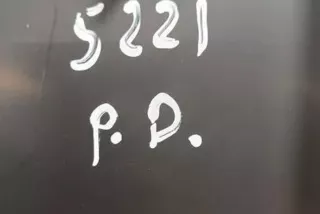 5221
P. D.